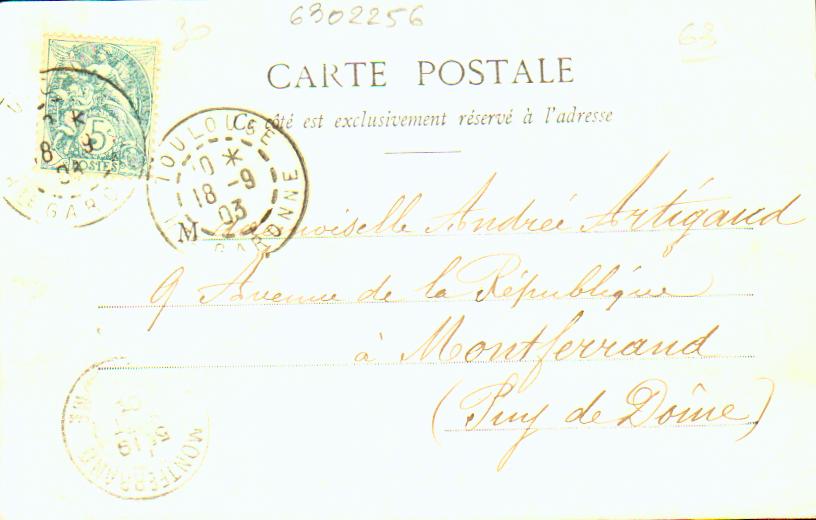 6302256
30
63
CARTE POSTALE
Ce côté est exclusivement réservé à l'adresse
5
POSTES
8 9
03
GARO
TOULOUSE
10 *
18 -9
03
GARONNE
Mademoiselle Andrée Artigaud
9 Avenue de la République
à Montferrand
(Puy de Dôme)
MONTFERRAND